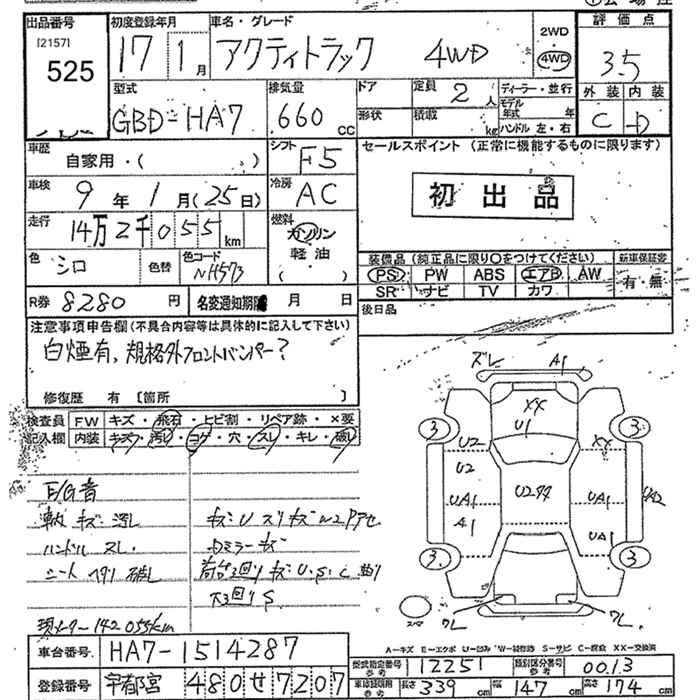 出品番号 初度登録年月 車名・グレード 2WD 評価点
[2157] 525
17 1月 アクティトラック 4WD 4WD 3.5
型式 排気量 ドア 定員 2人 ディーラー・並行 外装 内装
GBD-HA7 660cc 形状 積載 kg モデル年式 年 ハンドル 左・右 C D
車歴 自家用・( ) シフト F5 セールスポイント(正常に機能するものに限ります)
車検 9年1月(25日) 冷房 AC 初出品
走行 14万2千055km 燃料 ガソリン 軽油 ( )
色 シロ 色替 色コード NH573 装備品(純正品に限り○をつけてください) 新車保証書
PS PW ABS エアB AW 有・無
SR ナビ TV カワ
R券 8280円 名変通知期限 月 日 後日品
注意事項申告欄(不具合内容等は具体的に記入して下さい)
白煙有、規格外フロントバンパー?
修復歴 有 [箇所 ]
検査員 FW キズ・飛石・ヒビ割・リペア跡・×要
記入欄 内装 キズ・汚レ・コゲ・穴・スレ・キレ・破レ
E/G音
キズ・汚レ キズU スリキズ
ハンドル スレ ミラーキズ
シート ヘタリ 破レ 荷台回り キズ・U・S・C
回りS
現メーター142055km
ズレ A1
XX
U1
3 3
U2 XX
U2
UA1 U2 UA1 UA2
A1 UA1
3 3
ワレ ワレ
A=キズ E=エクボ U=凹み W=補修跡 S=サビ C=腐食 XX=交換済
車台番号 HA7-1514287 型式指定番号 参考 12251 類別区分番号 参考 0013
登録番号 宇都宮 480せ7207 車検証記載 参考 長さ 339cm 幅 147cm 高さ 174cm